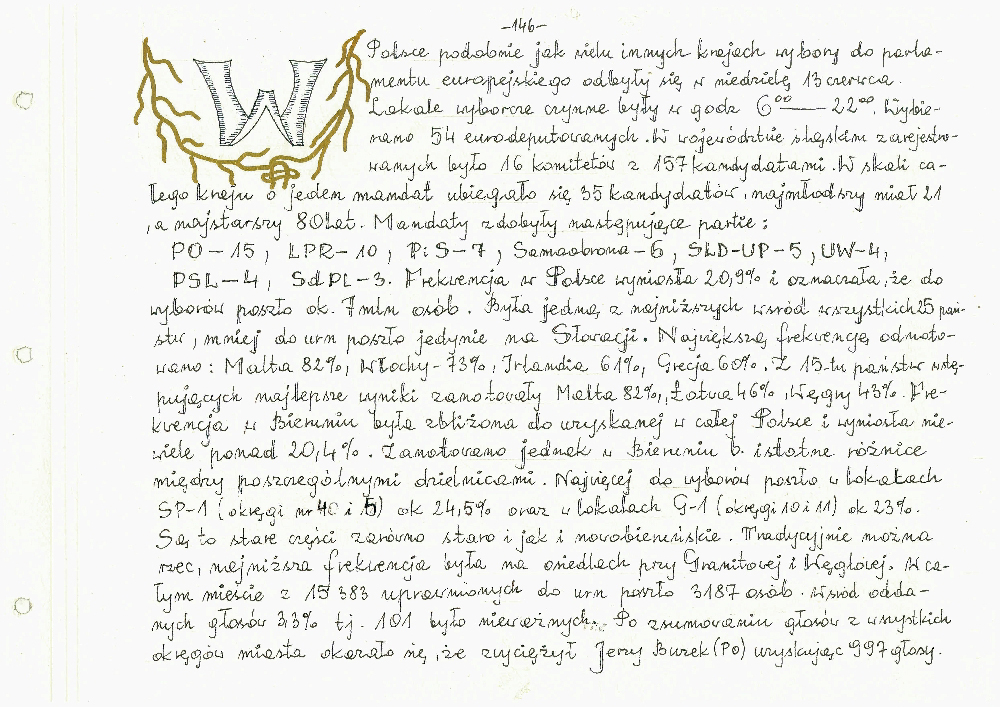 -146-
W Polsce podobnie jak wielu innych krajach wybory do parla-
mentu europejskiego odbyły się w niedzielę 13 czerwca.
Lokale wyborcze czynne były w godz 6⁰⁰ — 22⁰⁰. Wybie-
rano 54 eurodeputowanych. W województwie śląskim zarejestro-
wanych było 16 komitetów z 157 kandydatami. W skali ca-
łego kraju o jeden mandat ubiegało się 35 kandydatów, najmłodszy miał 21
, a najstarszy 80 lat. Mandaty zdobyły następujące partie:
PO-15, LPR-10, PiS-7, Samoobrona-6, SLD-UP-5, UW-4,
PSL-4, SdPL-3. Frekwencja w Polsce wyniosła 20,9% i oznaczała, że do
wyborów poszło ok. 7 mln osób. Była jedną z najniższych wśród wszystkich 25 pań-
stw, mniej do urn poszło jedynie na Słowacji. Największą frekwencję odnoto-
wano: Malta 82%, Włochy-73%, Irlandia 61%, Grecja 60%. Z 15-tu państw wstę-
pujących najlepsze wyniki zanotowały Malta 82%, Łotwa 46%, Węgry 43%. Fre-
kwencja w Bieruniu była zbliżona do uzyskanej w całej Polsce i wyniosła nie-
wiele ponad 20,4%. Zanotowano jednak w Bieruniu b. istotne różnice
między poszczególnymi dzielnicami. Najwięcej do wyborów poszło w lokalach
SP-1 (okręgi nr i 5) ok 24,5% oraz w lokalach G-1 (okręgi 10 i 11) ok 23%.
Są to stare części zarówno staro i jak i nowobieruńskie. Tradycyjnie można
rzec, najniższa frekwencja była na osiedlach przy Granitowej i Węglowej. W ca-
łym mieście z 15 383 uprawnionych do urn poszło 3187 osób. Wśród odda-
nych głosów 3,3% tj. 101 było nieważnych. Po zsumowaniu głosów z wszystkich
okręgów miasta okazało się, że zwyciężył Jerzy Buzek (PO) uzyskując 997 głosy.